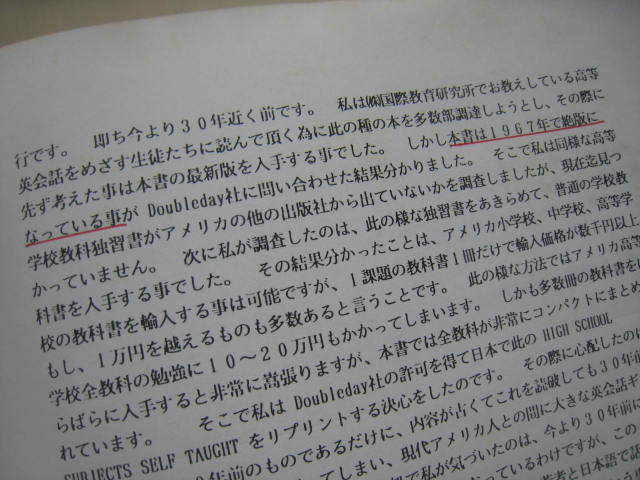 行です。　即ち今より３０年近く前です。　私は㈱国際教育研究所でお教えしている高等
英会話をめざす生徒たちに読んで頂く為に此の種の本を多数部調達しようとし、その際に
先ず考えた事は本書の最新版を入手する事でした。　しかし本書は１９６７年で絶版に
なっている事が Doubleday社に問い合わせた結果分かりました。　そこで私は同様な高等
学校教科独習書がアメリカの他の出版社から出ていないかを調査しましたが、現在迄見つ
かっていません。　次に私が調査したのは、此の様な独習書をあきらめて、普通の学校教
科書を入手する事でした。　その結果分かったことは、アメリカ小学校、中学校、高等学
校の教科書を輸入する事は可能ですが、１課題の教科書１冊だけで輸入価格が数千円以上
もし、１万円を越えるものも多数あると言うことです。　此の様な方法ではアメリカ高等
学校全教科の勉強に１０～２０万円もかかってしまいます。　しかも多数冊の教科書を
らばらに入手すると非常に嵩張りますが、本書では全教科が非常にコンパクトにまとめ
れています。　そこで私は Doubleday社の許可を得て日本で此の HIGH SCHOOL
SUBJECTS SELF TAUGHT をリプリントする決心をしたのです。　その際に心配したのは
年前のものであるだけに、内容が古くてこれを読破しても３０年前
てしまい、現代アメリカ人との間に大きな英会話ギ
で私が気づいたのは、今より３０年前に
なっているわけですが、この
者と日本語で話